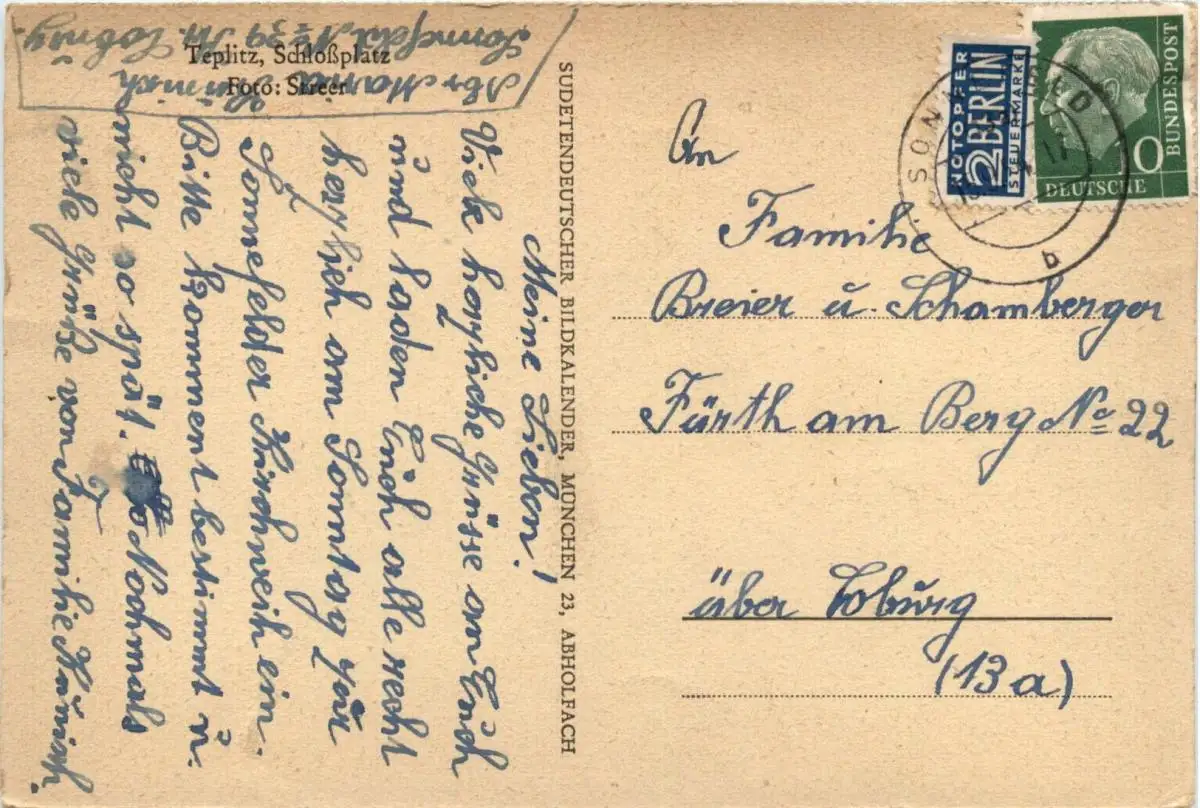 Teplitz, Schloßplatz
Foto: Streer
Abs. Maria
Sonnefeld No 39
Meine Lieben!
Viele herzliche Grüsse an Euch
und laden Euch alle recht
herzlich am Sonntag zur
Sonnefelder Kirchweih ein.
Bitte kommt bestimmt u.
nicht so spät. Nochmals
viele Grüße von Familie
SUDETENDEUTSCHER BILDKALENDER, MÜNCHEN 23, ABHOLFACH
NOTOPFER
2 BERLIN
STEUERMARKE
DEUTSCHE
BUNDESPOST
10
b
An
Familie
Breier u. Schamberger
Fürth am Berg No 22
über Coburg
(13a)